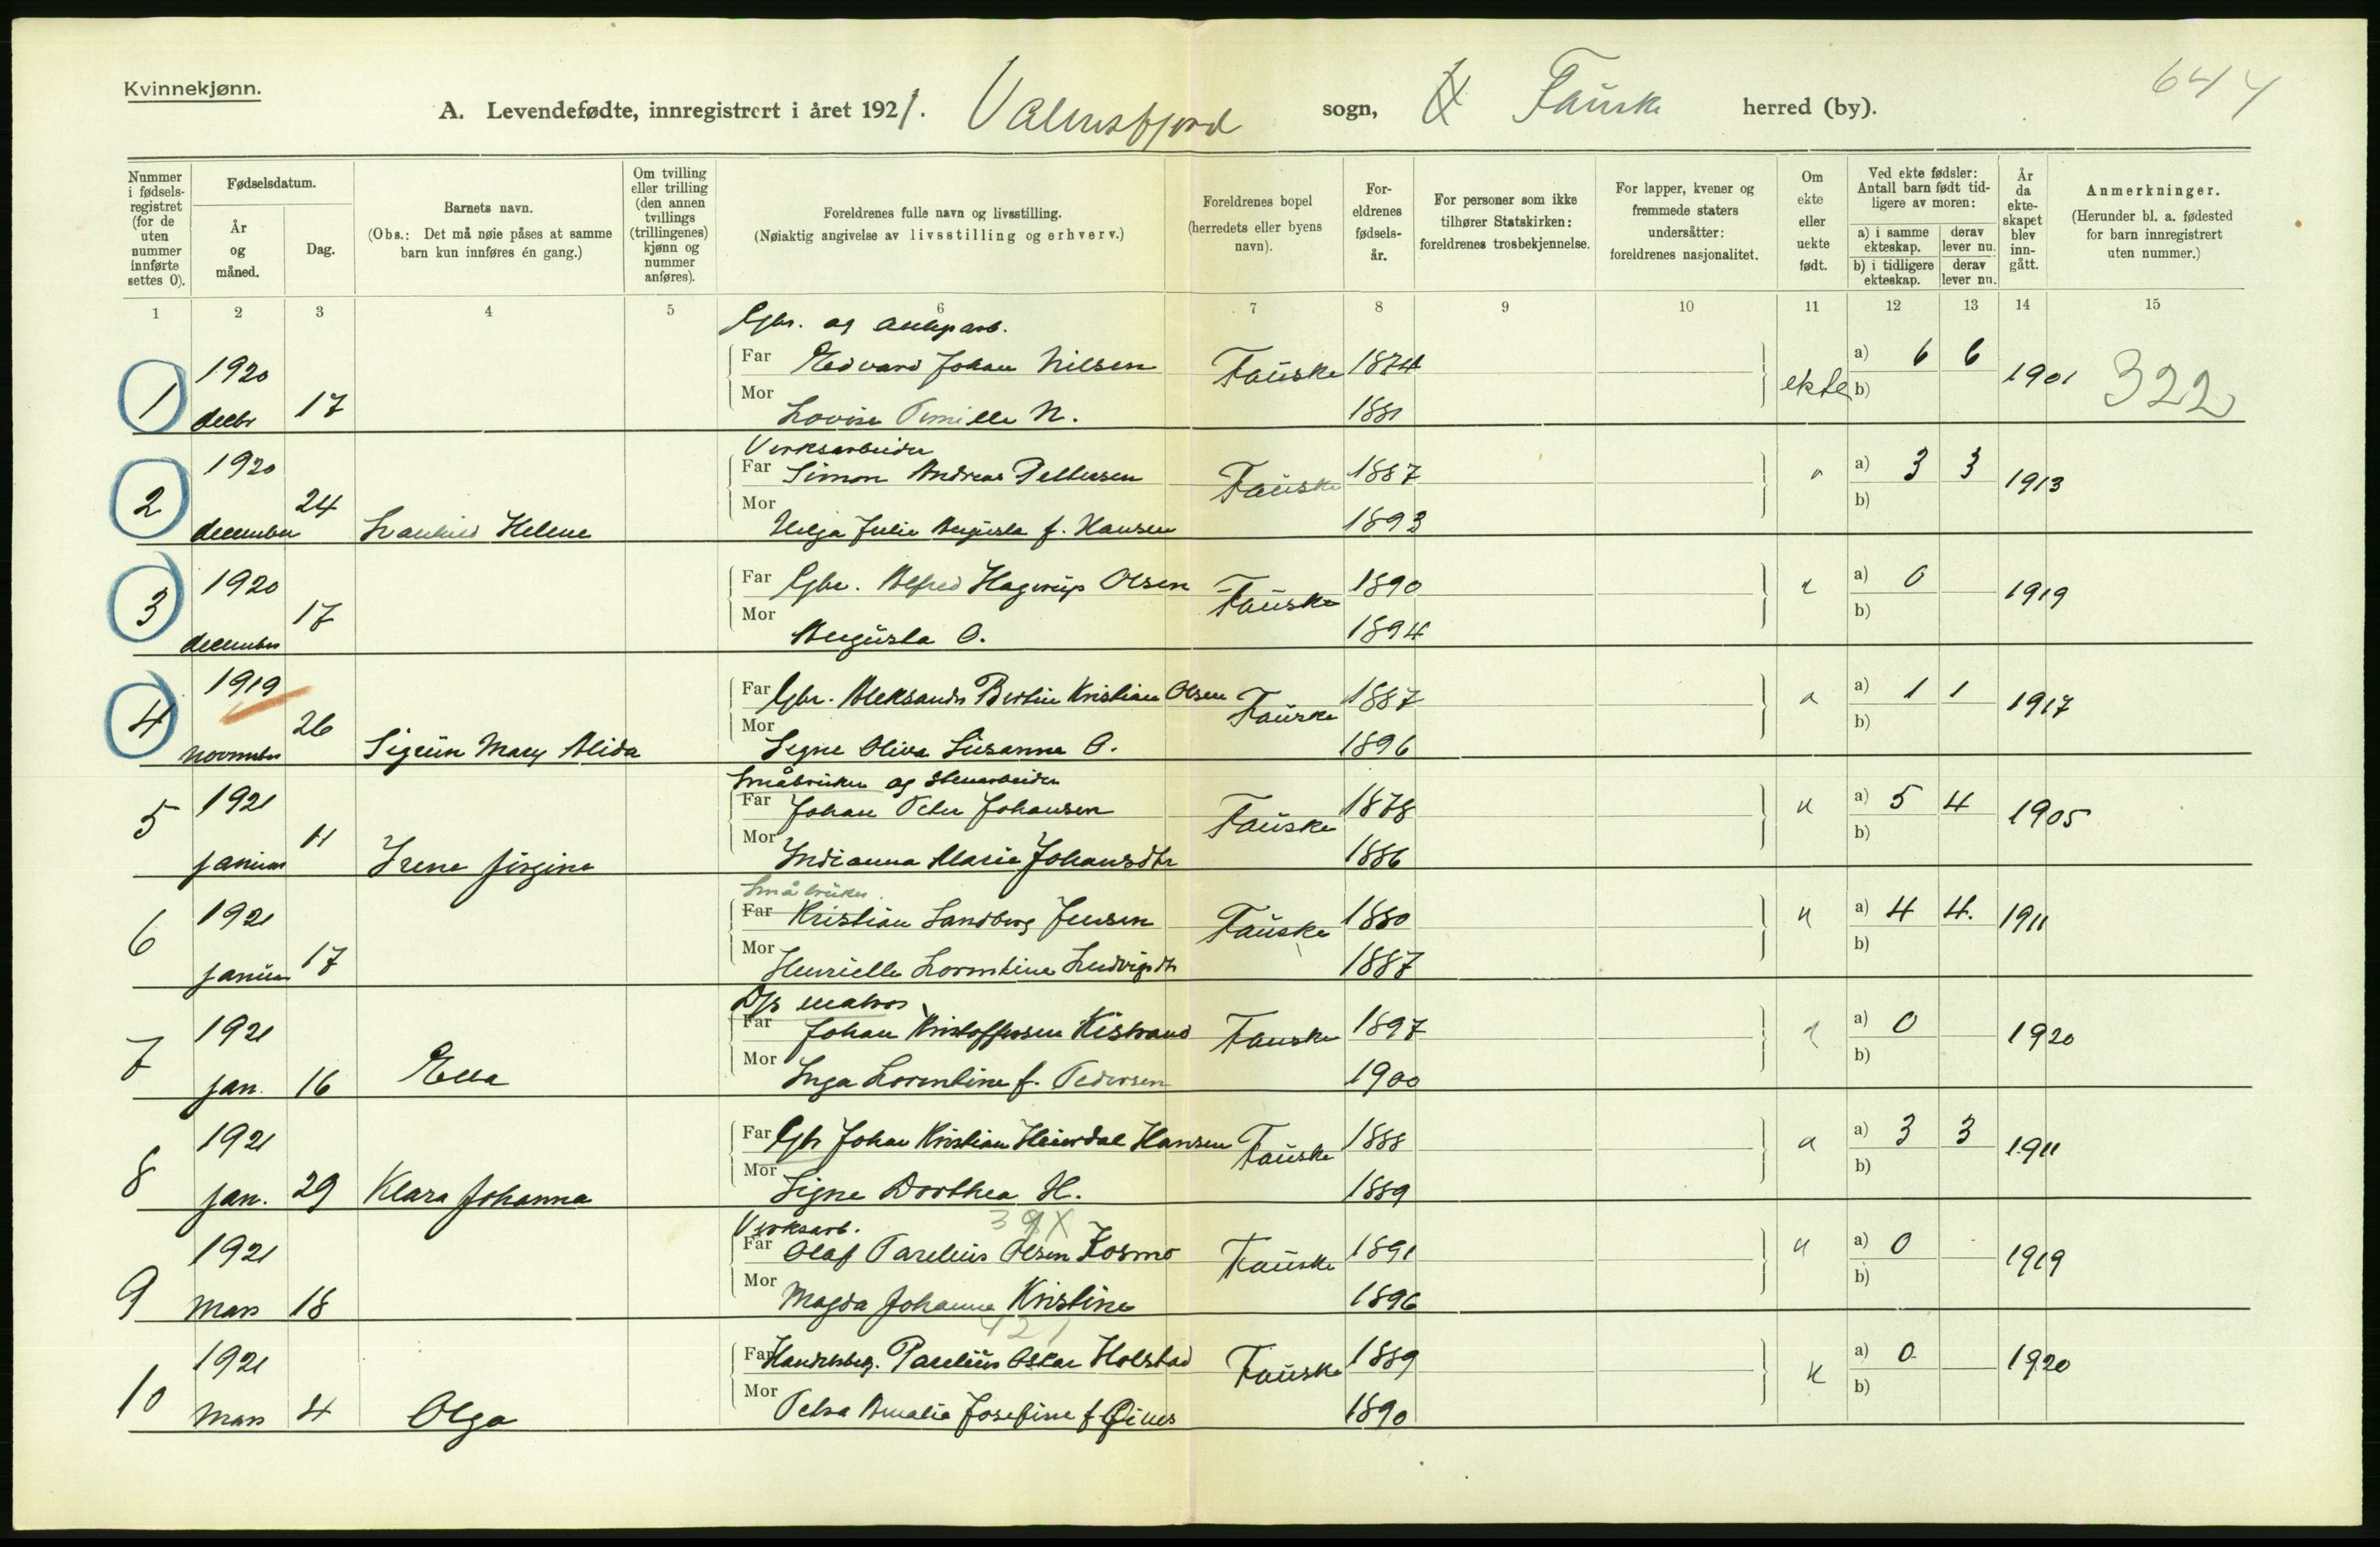 Kvinnekjønn.
644
A. Levendefødte, innregistrert i året 1921. Valnesfjord sogn, Fauske herred (by).
Nummer i fødselsregistret (for de uten nummer innførte settes 0).
Fødselsdatum.
År og måned.
Dag.
Barnets navn.
(Obs.: Det må nøie påses at samme barn kun innføres én gang.)
Om tvilling eller trilling (den annen tvillings (trillingenes) kjønn og nummer anføres).
Foreldrenes fulle navn og livsstilling.
(Nøiaktig angivelse av livsstilling og erhverv.)
Foreldrenes bopel (herredets eller byens navn).
Foreldrenes fødselsår.
For personer som ikke tilhører Statskirken: foreldrenes trosbekjennelse.
For lapper, kvener og fremmede staters undersåtter: foreldrenes nasjonalitet.
Om ekte eller uekte født.
Ved ekte fødsler: Antall barn født tidligere av moren:
a) i samme ekteskap.
derav lever nu.
b) i tidligere ekteskap.
derav lever nu.
År da ekteskapet blev inngått.
Anmerkninger.
(Herunder bl. a. fødested for barn innregistrert uten nummer.)
1 2 3 4 5 6 7 8 9 10 11 12 13 14 15
Gbr. og anlegsarb.
1 1920 Far Edvard Johan Nilsen Fauske 1874 ekte a) 6 6 1901 322
decbr 17 Mor Lovise Pernille N. 1881 b)
Verksarbeider
2 1920 Far Simon Andreas Pettersen Fauske 1887 " a) 3 3 1913
december 24 Svanhild Helene Mor Helga Julie Augusta f. Hansen 1893 b)
3 1920 Far Gbr. Alfred Hagerup Olsen Fauske 1890 " a) 0 1919
december 17 Mor Augusta O. 1894 b)
4 1919 Far Gbr. Aleksander Bertin Kristian Olsen Fauske 1887 " a) 1 1 1917
november 26 Sigrun Mary Alida Mor Signe Oliva Susanna O. 1896 b)
Småbruker og stenarbeider
5 1921 Far Johan Peter Johansen Fauske 1878 " a) 5 4 1905
januar 11 Irene Jørgine Mor Indianna Marie Johansdtr 1886 b)
Småbruker
6 1921 Far Kristian Sandberg Jensen Fauske 1880 " a) 4 4. 1911
januar 17 Mor Henriette Lorentine Ludvigsdtr 1887 b)
D/s matros
7 1921 Far Johan Kristoffersen Kistrand Fauske 1897 " a) 0 1920
jan. 16 Ella Mor Inga Lorentine f. Pedersen 1900 b)
8 1921 Far Gbr Johan Kristian Heierdal Hansen Fauske 1888 " a) 3 3 1911
jan. 29 Klara Johanna Mor Signe Dorthea H. 1889 b)
Verksarb. 39X
9 1921 Far Olaf Parelius Olsen Kosmo Fauske 1891 " a) 0 1919
mars 18 Mor Magda Johanna Kristine 1896 b)
421
10 1921 Far Handelsbetj. Parelius Oskar Holstad Fauske 1889 " a) 0 1920
mars 4 Olga Mor Petra Amalie Josefine f. Øines 1890 b)